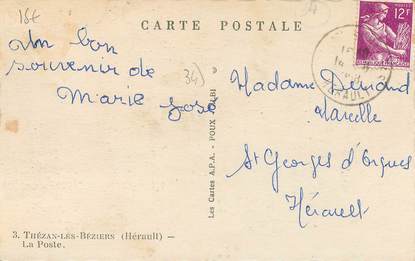 16€
CARTE POSTALE
12F
Un bon
souvenir de
Marie José
34)
Madame Durand
Marcelle
St Georges d'Orques
Hérault
HERAULT
Les Cartes A.P.A. - POUX
ALBI
3. THÉZAN-LÈS-BÉZIERS (Hérault) —
La Poste.